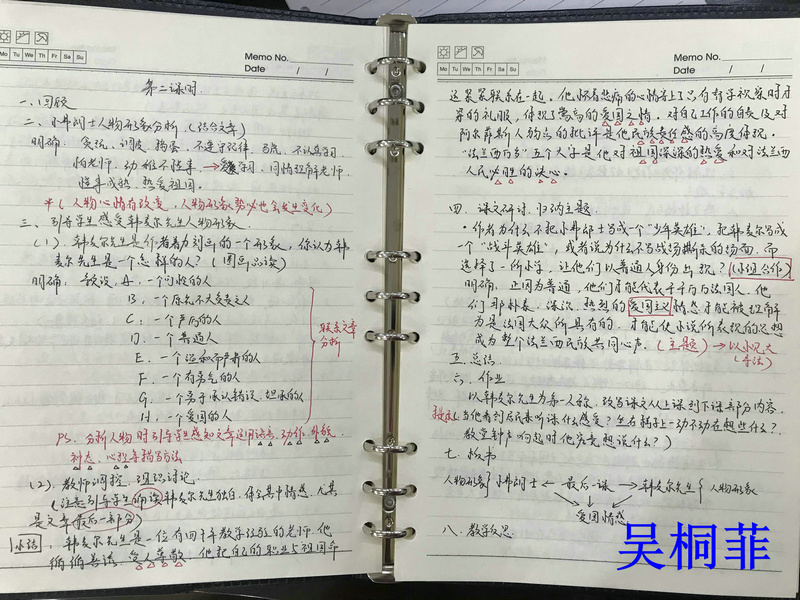 Mo Tu We Th Fr Sa Su
Memo No.
Date / /
第二课时
一、回顾
二、小弗朗士人物形象分析（结合文章）
明确：贪玩、调皮、不遵守纪律、不认真学习
怕老师、幼稚不懂事→爱学习、同情理解老师
懂事成熟、热爱祖国。
*（人物心情有改变，人物形象势必也会发生变化）
三、引导学生感受韩麦尔先生人物形象
（1）、韩麦尔先生是作者着力刻画的一个形象，你认为韩
麦尔先生是一个怎样的人？（圈画品读）
明确：教设，A、一个可敬的人
B、一个
C、一个严厉的人
D、一个普通人
E、一个温和而严肃的人
F、一个有勇气的人
G、一个善于承认错误、坦承的人
H、一个爱国的人
联系文章
分析
PS、分析人物时引导学生感知文章运用语言、动作、外貌、
神态、心理等描写方法
（2）教师调控、组织讨论
（注意引导学生朗读韩麦尔先生独白，体会其中情感，尤其
是文章最后一部分）
小结：韩麦尔先生是一位有四十年教学经验的老师，他
循循善诱、受人尊敬，他把自己的职业与祖国命
Mo Tu We Th Fr Sa Su
Memo No.
Date / /
运紧紧联系在一起。他怀着悲痛的心情穿上了只有督学视察时才
穿的礼服，体现了崇高的爱国之情，对自己工作的自责及对
阿尔萨斯人劣点的批评是他民族责任感的高度体现。
“法兰西万岁”五个大字是他对祖国深深的热爱和对法兰西
人民必胜的决心。
四、课文研讨、归纳主题
·作者为什么不把小弗郎士当成一个“少年英雄”，把韩麦尔当成
一个“战斗英雄”，或者说为什么不写战场厮杀的场面，而
选择了一所小学，让他们以普通人身份出现？（小组合作）
明确：正因为普通，他们才能代表千千万万法国人，他
们那朴素、深沉、热烈的爱国主义情感才能被理解
为是法国大众所具有的，才能使小说所表现的思想
成为整个法兰西民族共同心声。（主题）→以小见大
（手法）
五、总结
六、作业
以韩麦尔先生为第一人称，改写课文从上课到下课部分内容。
提示：当他看到居民来听课什么感受？坐在椅子上一动不动在想些什么？
教堂钟声响起时他究竟想说什么？）
七、板书
人物形象｝小弗朗士←最后一课→韩麦尔先生｛人物形象
爱国情感
八、教学反思
吴桐菲